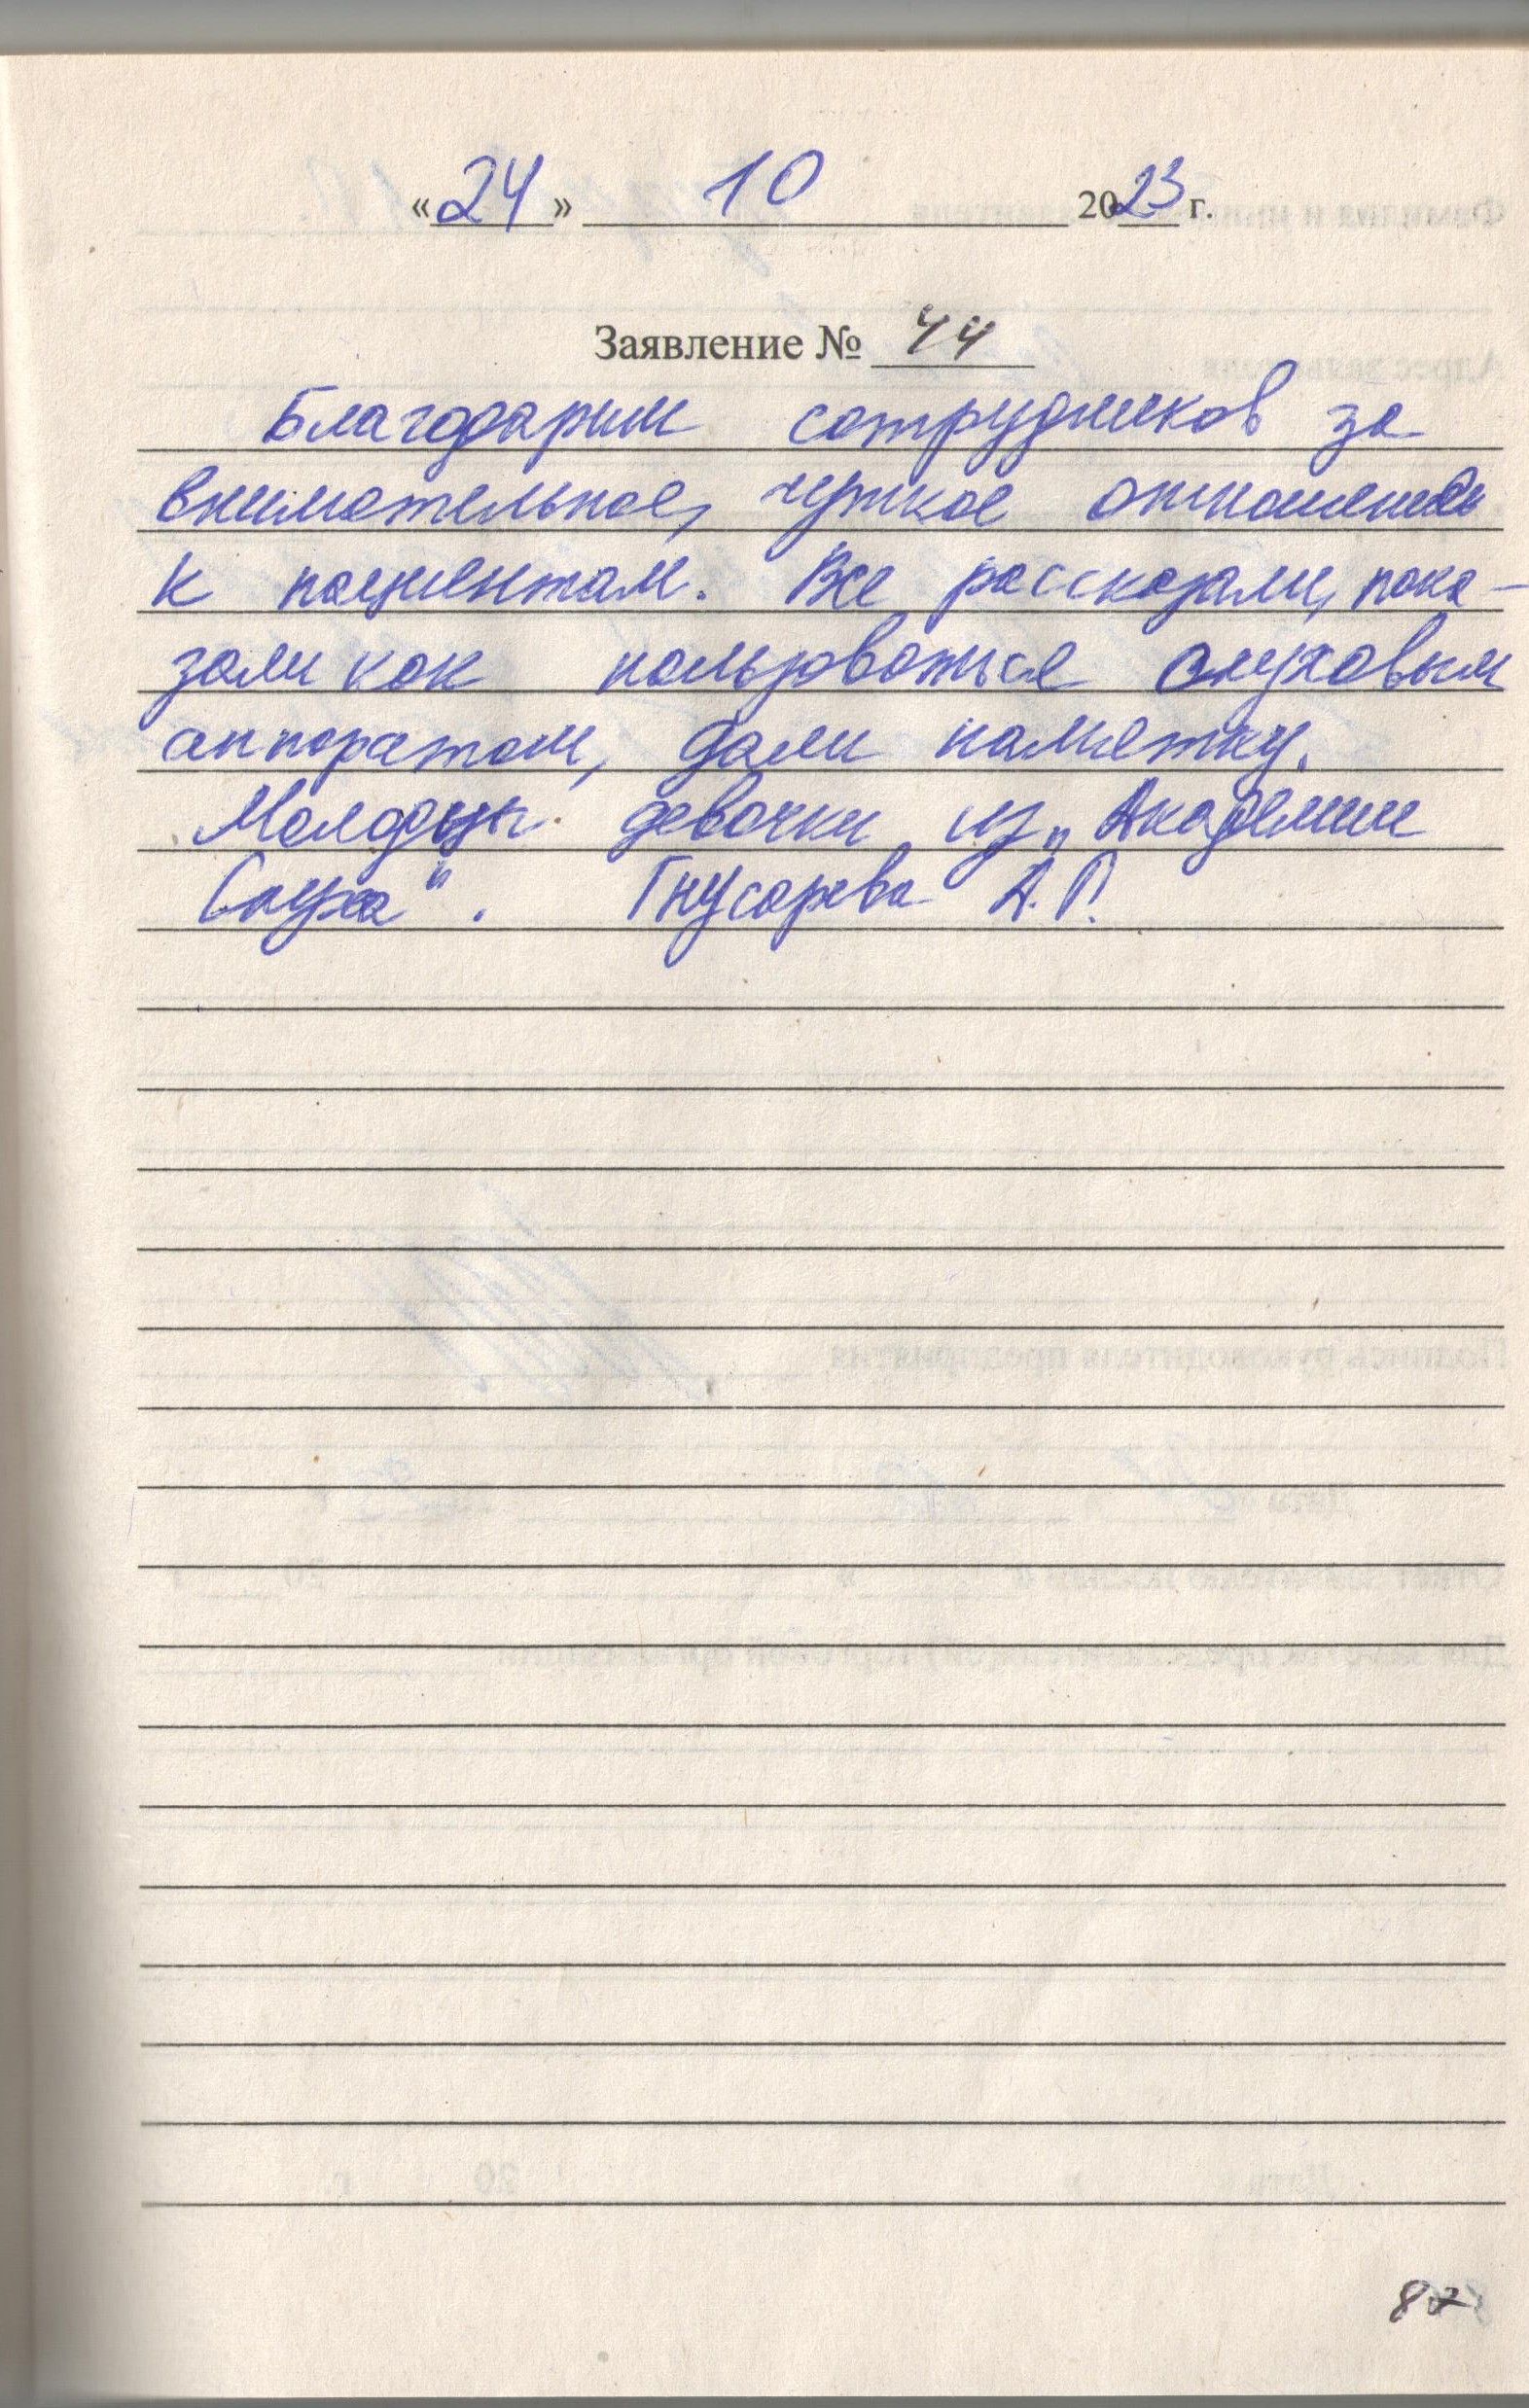 «24» 10 2023 г.
Заявление № 44
Благодарим сотрудников за
внимательное, чуткое отношение
к пациентам. Все рассказали, пока-
зали как пользоваться слуховым
аппаратом, дали памятку.
Молодцы девочки из „Академии
Слуха". Гнусарева А. П.
87